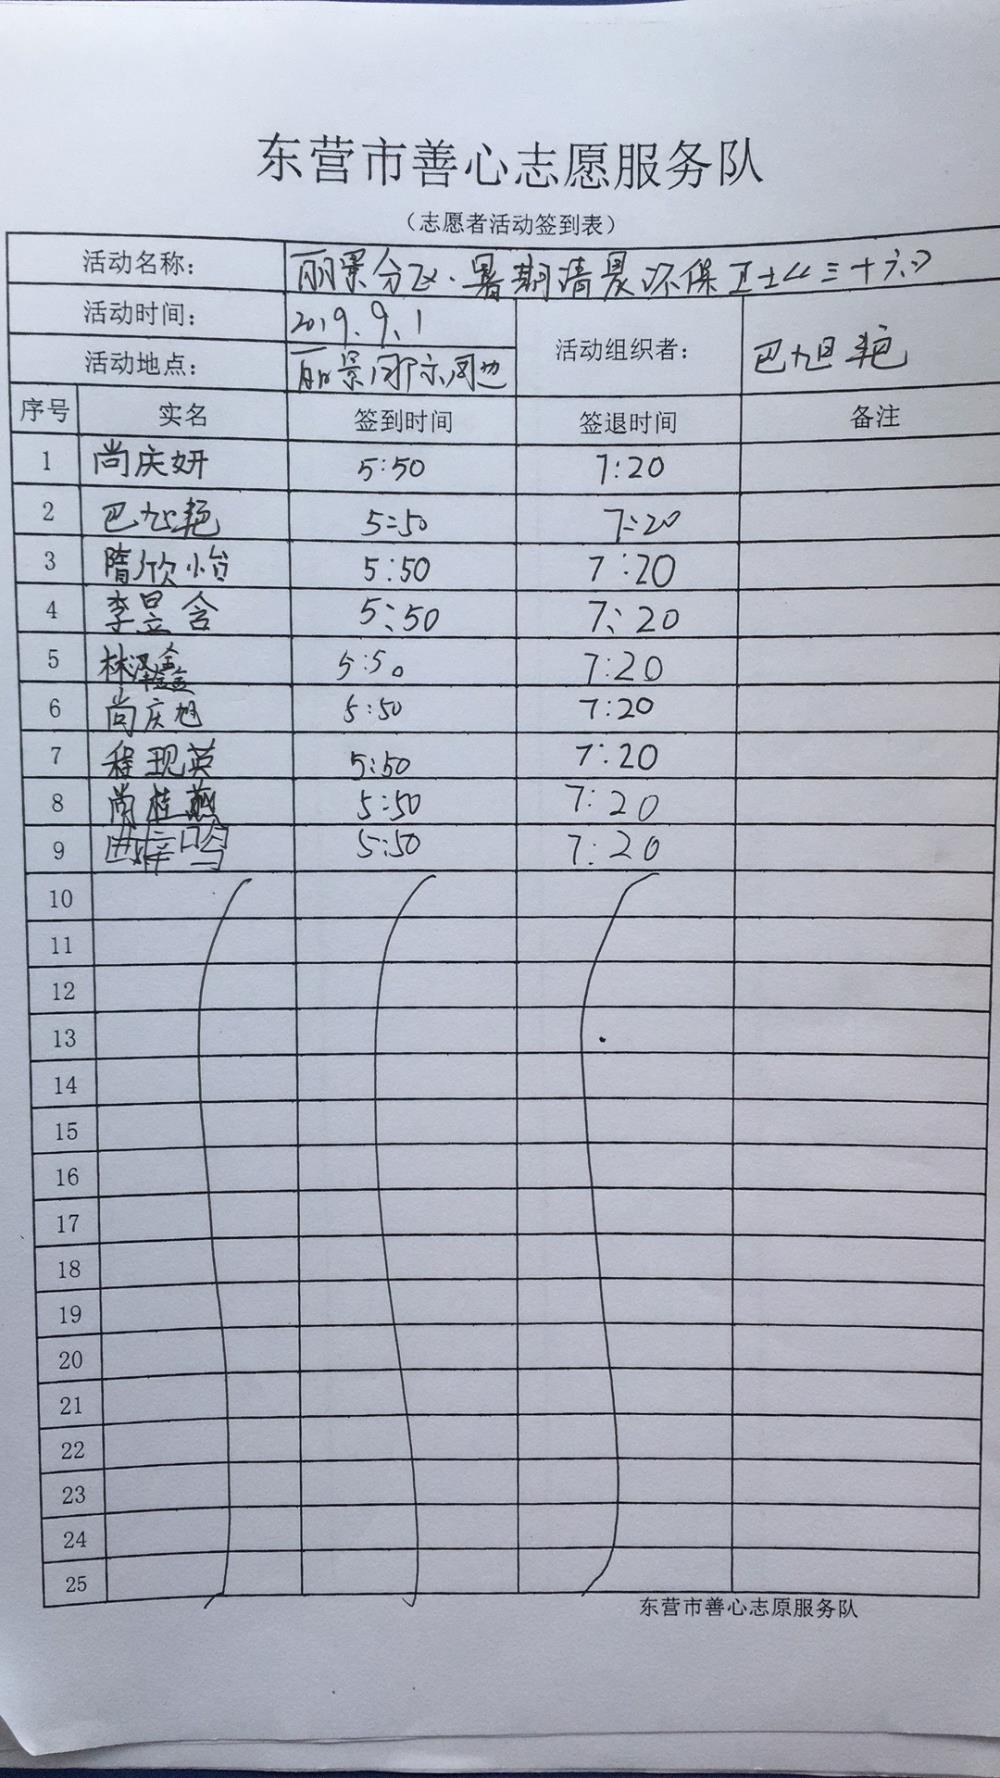 东营市善心志愿服务队
（志愿者活动签到表）
活动名称： 丽景分队·暑期清晨环保卫士<<三十六>>
活动时间： 2019.9.1 活动组织者： 巴旭艳
活动地点： 丽景
序号 实名 签到时间 签退时间 备注
1 尚庆妍 5:50 7:20
2 巴旭艳 5:50 7:20
3 隋欣怡 5:50 7:20
4 李昱含 5:50 7:20
5 林 鑫 5:50 7:20
6 尚庆旭 5:50 7:20
7 程现英 5:50 7:20
8 尚桂燕 5:50 7:20
9 5:50 7:20
10
11
12
13
14
15
16
17
18
19
20
21
22
23
24
25
东营市善心志原服务队